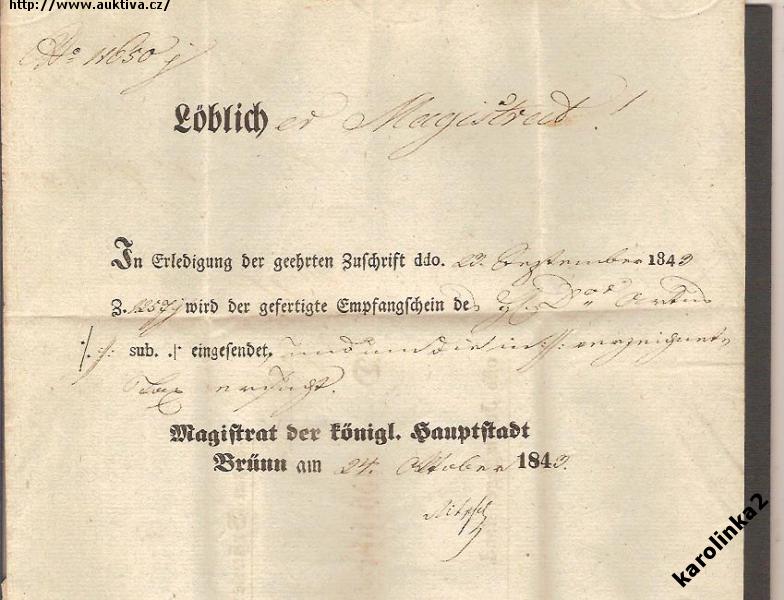 http://www.auktiva.cz/
No 11650 j
Löblicher Magistrat!
In Erledigung der geehrten Zuschrift ddo. 23. September 1843
Z. 1257 j wird der gefertigte Empfangschein des H. Dor
./. sub. ./. eingesendet, und um die in verzeichnete
Tax ersucht.
Magistrat der königl. Hauptstadt
Brünn am 24. Oktober 1843.
karolinka2